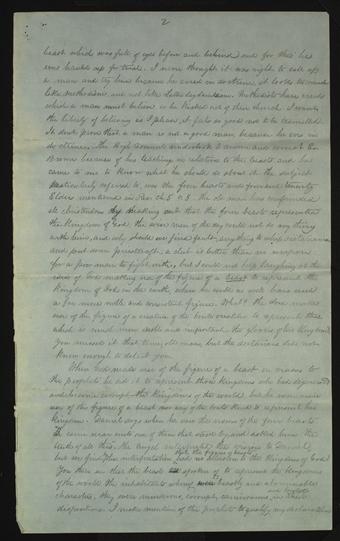 2
beast which was full of eyes before and behind and for this he
was hauled up for trial. I never thought it was right to call up
a man and try him because he erred in doctrine, it looks too much
like Methodism and not like Latter day Saintism. Methodists have creeds
which a man must believe or be kicked out of their church. I want
the liberty of believing as I please, it feels so good not to be trammelled.
It dont prove that a man is not a good man because he errs in
doctrine. The High Council undertook to censure and correct Er.
Brown because of his teaching in relation to the beasts and he
came to me to know what he should do about it. the subject
particularly referred to, was the four beasts and four and twenty
Elders mentioned in Rev. ch 5 v 8. The old man has confounded
all christendom by speaking out that the four beasts represented
the Kingdom of God; the wise men of the day could not do any thing
with him, and why should we find fault, anything to whip sectarianism
and put down priestcraft; a club is better than no weapon
for a poor man to fight with, but I could not help laughing at the
idea of God making use of the figure of a beast to represent the
Kingdom of God on the earth, when he could as well have used
a far more noble and consistent figure. What? the Lord make
use of the figure of a creature of the brute creation to represent that
which is much more noble and important. the glories of his Kingdom?
You missed it that time, old man, but the sectarians did not
know enough to detect you.
When God made use of the figure of a beast in visions to
the prophets, he did it to represent those Kingdoms who had degenerated
and become corrupt – the Kingdoms of the world, but he never made
use of the figure of a beast nor any of the brute kind to represent his
Kingdom. Daniel says when he saw the vision of the four beasts
"I came near unto one of them that stood by, and asked him the
truth of all this; the Angel interpreted the vision to Daniel,
but we find the interpretation that the figures of beasts had no allusion to the Kingdom of God
You there see that the beasts are spoken of to represent the Kingdoms
of the world the inhabitants whereof were beastly and abominable
characters, they were murderous, corrupt, carnivorous and brutal in their
dispositions. I make mention of the prophets to qualify my declaration